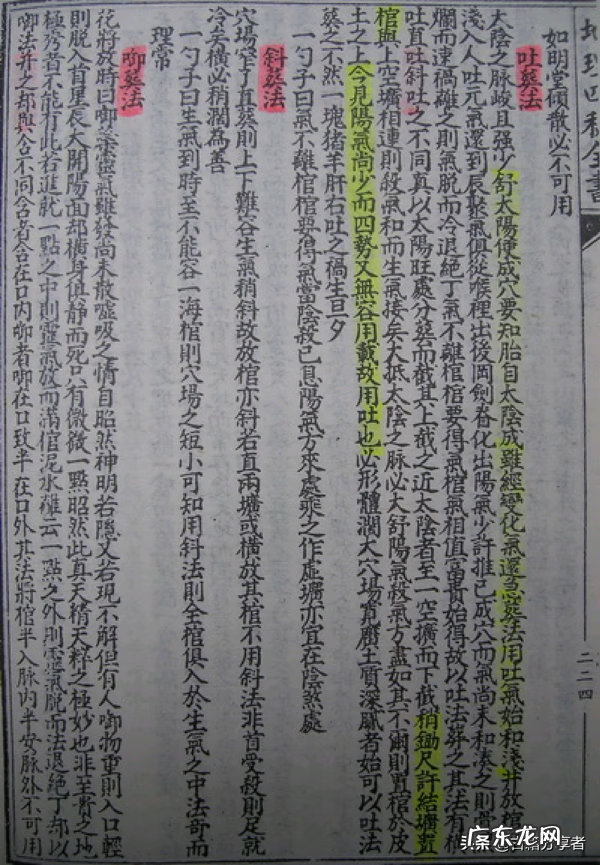 地理四秘全書
二二四
如明堂傾散必不可用
吐葬法
太陰之脈峻且强少舒太陽便成穴要知胎自太陰成雖經變化氣還急葬法用吐氣始和淺井放棺
淺入人吐元氣還到辰聚氣俱從喉裡出後岡劍脊化出陽氣少許推已成穴而氣尚未和湊之則當
爛而速禍離之則氣脫而冷退絕丁氣不離棺棺要得氣棺氣相值富貴始得故以吐法葬之其法有
吐直吐斜吐之不同真以太陽旺處分葬而截其上截之近太陰者至一空擴而下截稍鋤尺許結壙置
棺與上空壙相連則殺氣和而生氣接矣大抵太陰之脈必大舒陽氣殺氣方盡如其不爾則置棺於皮
土之上今見陽氣尚少而四勢又無容用截故用吐也必形體濶大穴場寬厚土質深膩者始可以吐法
葬之不然一塊猪羊肝右吐之禍生旦夕
一勺子曰氣不離棺棺與得氣當陰殺已息陽氣方來處乘之作虛壙亦宜在陰煞處
斜葬法
穴場窄了直葬則上下難容生氣稍斜故放棺亦斜若直兩壙或橫放其棺不用斜法非首受殺則足就
冷矣橫必稍濶為善
一勺子曰生氣到時至不能容一海棺則穴場之短小可知用斜法則全棺俱入於生氣之中法部而
理常
啣葬法
花將放時曰啣葬靈氣雖發尚未散噓吸之情自昭然神明若隱又若現不解但有人啣物重則入口輕
則脫入首星辰大開陽面却橫身俱靜而死只有微微一點昭然此真天精天粹之極妙也非至貴之地
極秀者不能有此若進就一點之中則靈氣放而滿棺泥水離云一點之外則靈氣脫而法退絕丁却以
啣法弁之却與含不同含者含在口內啣者啣在口致半在口外其法將棺半入脈內半安脈外不可用
头条@古籍分享者
广东龙网